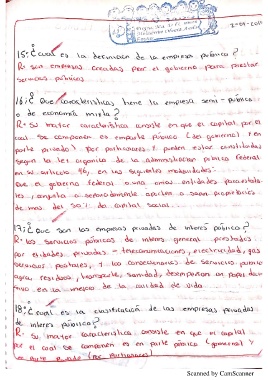 15.¿Cual es la definicion de la empresa pública?
R= Son empresas creadas por el gobierno para prestar
servicios públicos
16.¿Que caracteristicas tiene la empresa semi-pública
o de economía mixta?
R= Su mayor caracteristica consiste en que el capital, por el
cual se componen es en parte público (del gobierno) y en
parte privado (por particulares) y pueden estar constituidas
según la ley organica de la administracion pública federal
en su articulo 46, en las siguientes modalidades:
Que el gobierno federal o una o mas entidades paraestatales,
conjunta o separadamente aporten o sean propietarios
de mas del 50% del capital social
17.¿Que son las empresas privadas de interes público?
R= Los servicios públicos de interes general prestados
por entidades privadas telecomunicaciones, electricidad, gas
servicios postales, y los concesionarios de servicios público
agua residuos, transporte, sanidad, desempeñan un papel
en la mejora de la calidad de vida
18.¿Cual es la clasificación de las empresas privadas
de interes público?
R= Su mayor caracteristica consiste en que el capital
por el cual se componen es en parte público (gobierno) y
en parte privado (de particulares)
Scanned by CamScanner